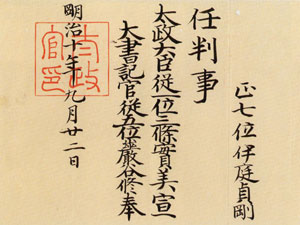 正七位伊庭貞剛
任判事
太政大臣従一位三條實美宣
大書記官従五位巖谷修奉
明治十年九月廿二日
太政官印